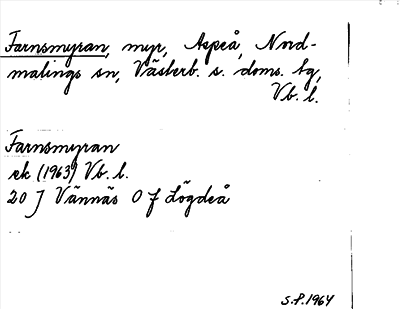 Farnsmyran, myr, Aspeå, Nord-
malings sn, Västerb. s. doms. tg,
Vb. l.
Farnsmyran
ek (1963) Vb. l.
20 J Vännäs O f Lögdeå
S.P. 1964